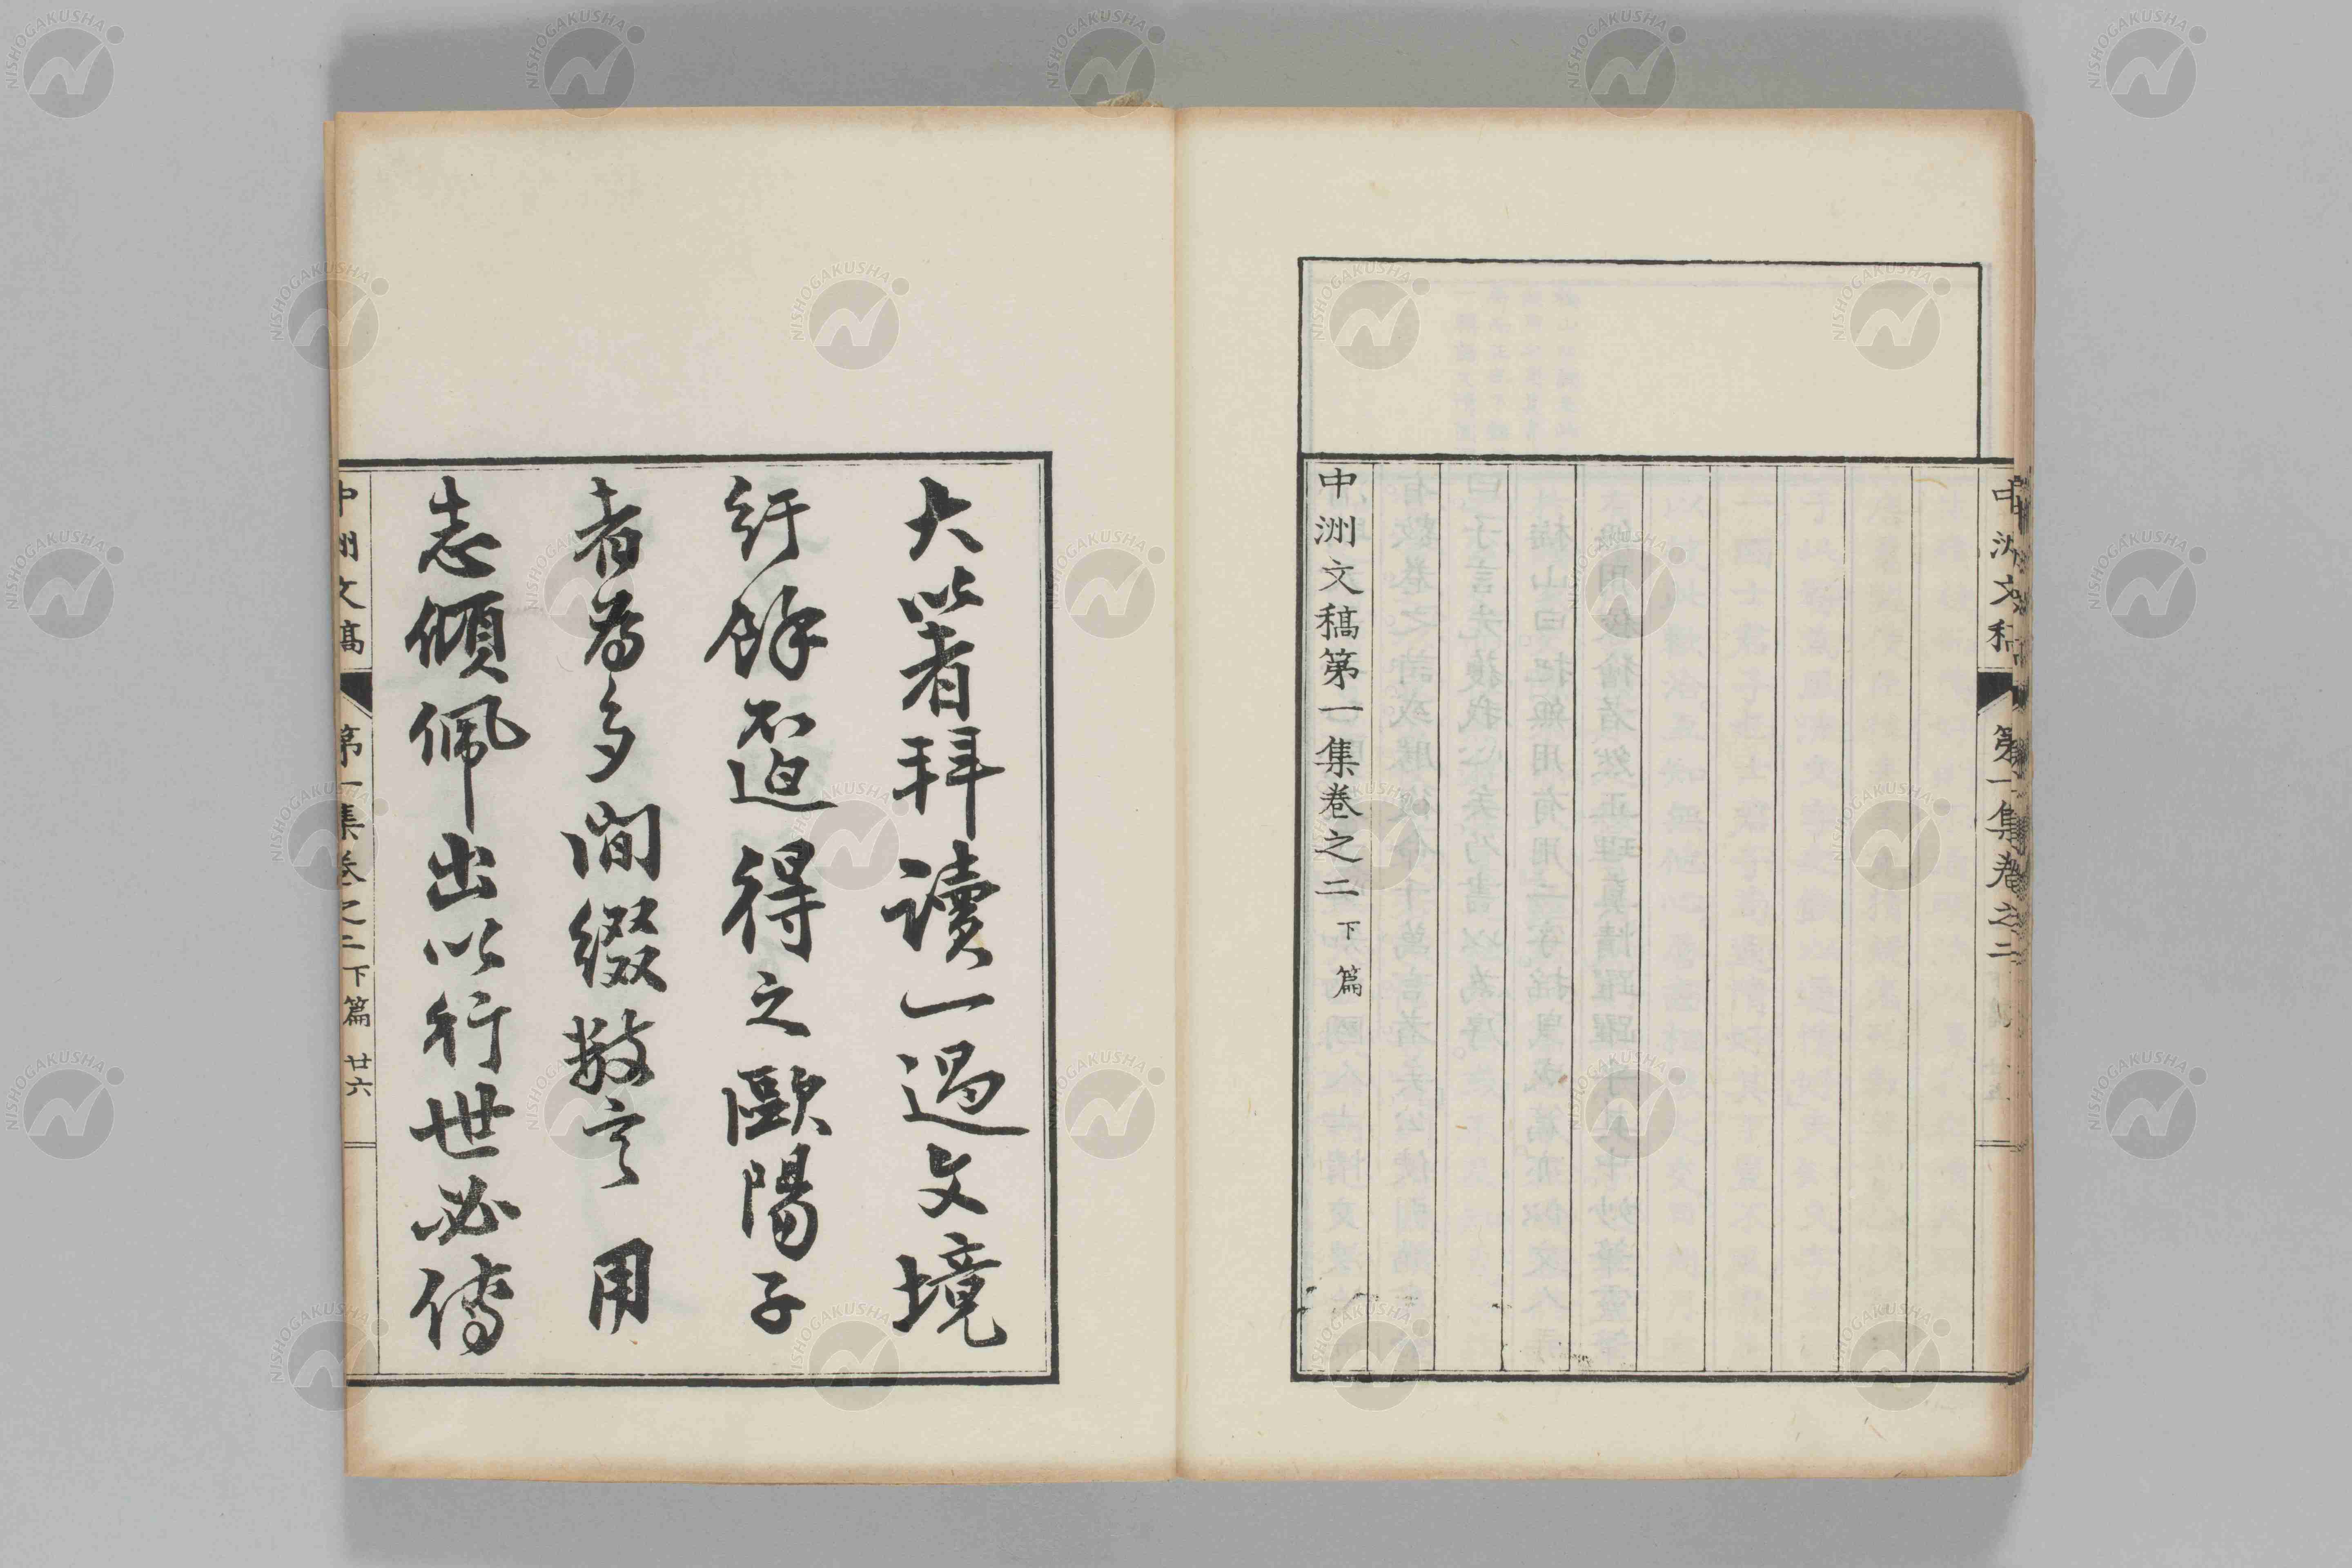 中洲文稿
第一集卷之二
中洲文稿第一集卷之二 下篇
大著拜讀一過文境
紆餘不迫得之歐陽子
者為多間綴数言用
志傾佩出以行世必傳
中洲文稿
第一集卷之二 下篇 廿六
NISHOGAKUSHA